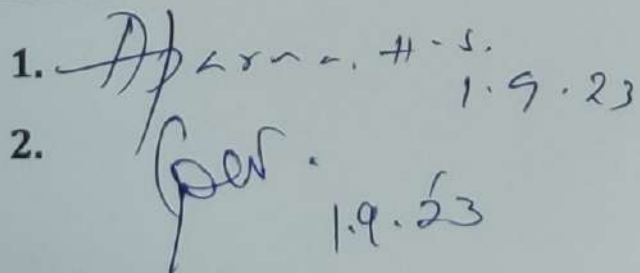 1. Aparna. H-S.
1.9.23
2.
1.9.23